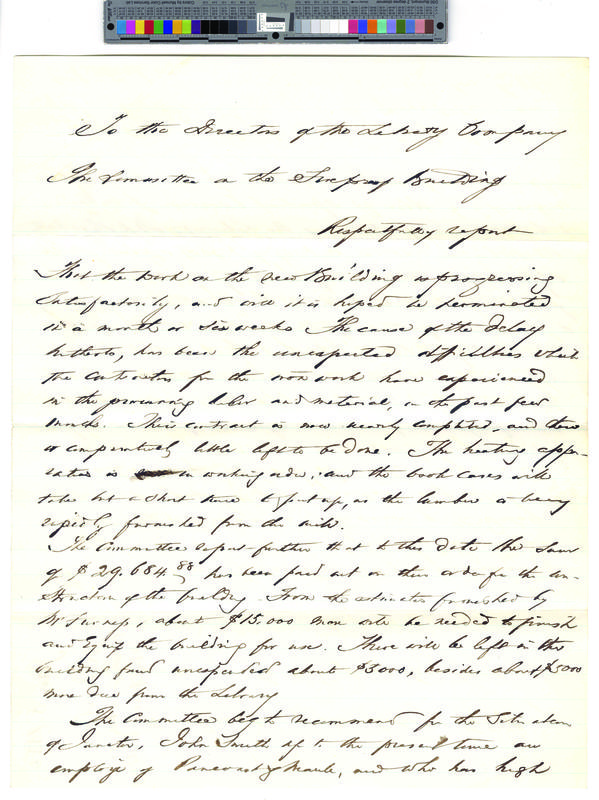 To the Directors of the Library Company
The Committee on the Fireproof Building
Respectfully report
That the work on the new Building is progressing
satisfactorily, and will it is hoped be terminated
in a month or six weeks The cause of the delay
hitherto, has been the unexpected difficulties which
the contractors for the iron work have experienced
in the procuring labor and material, in the past few
months. This contract is now nearly completed, and there
is comparatively little left to be done. The heating appa-
ratus is in working order; and the book cases will
take but a short time to put up, as the lumber is being
rapidly furnished from the mill.
The Committee report further that to this date the sum
of $29.684.88 has been paid out on their order for the con-
struction of the building. From the estimates furnished by
Mr about $15.000 more will be needed to finish
and Equip the building for use. There will be left in the
building fund unexpended about $3000, besides about $5000
more due from the Library
The Committee beg to recommend for the Situation
of Janitor, John Smith up to the present time an
employé of Pancoast & Maule, and who has high